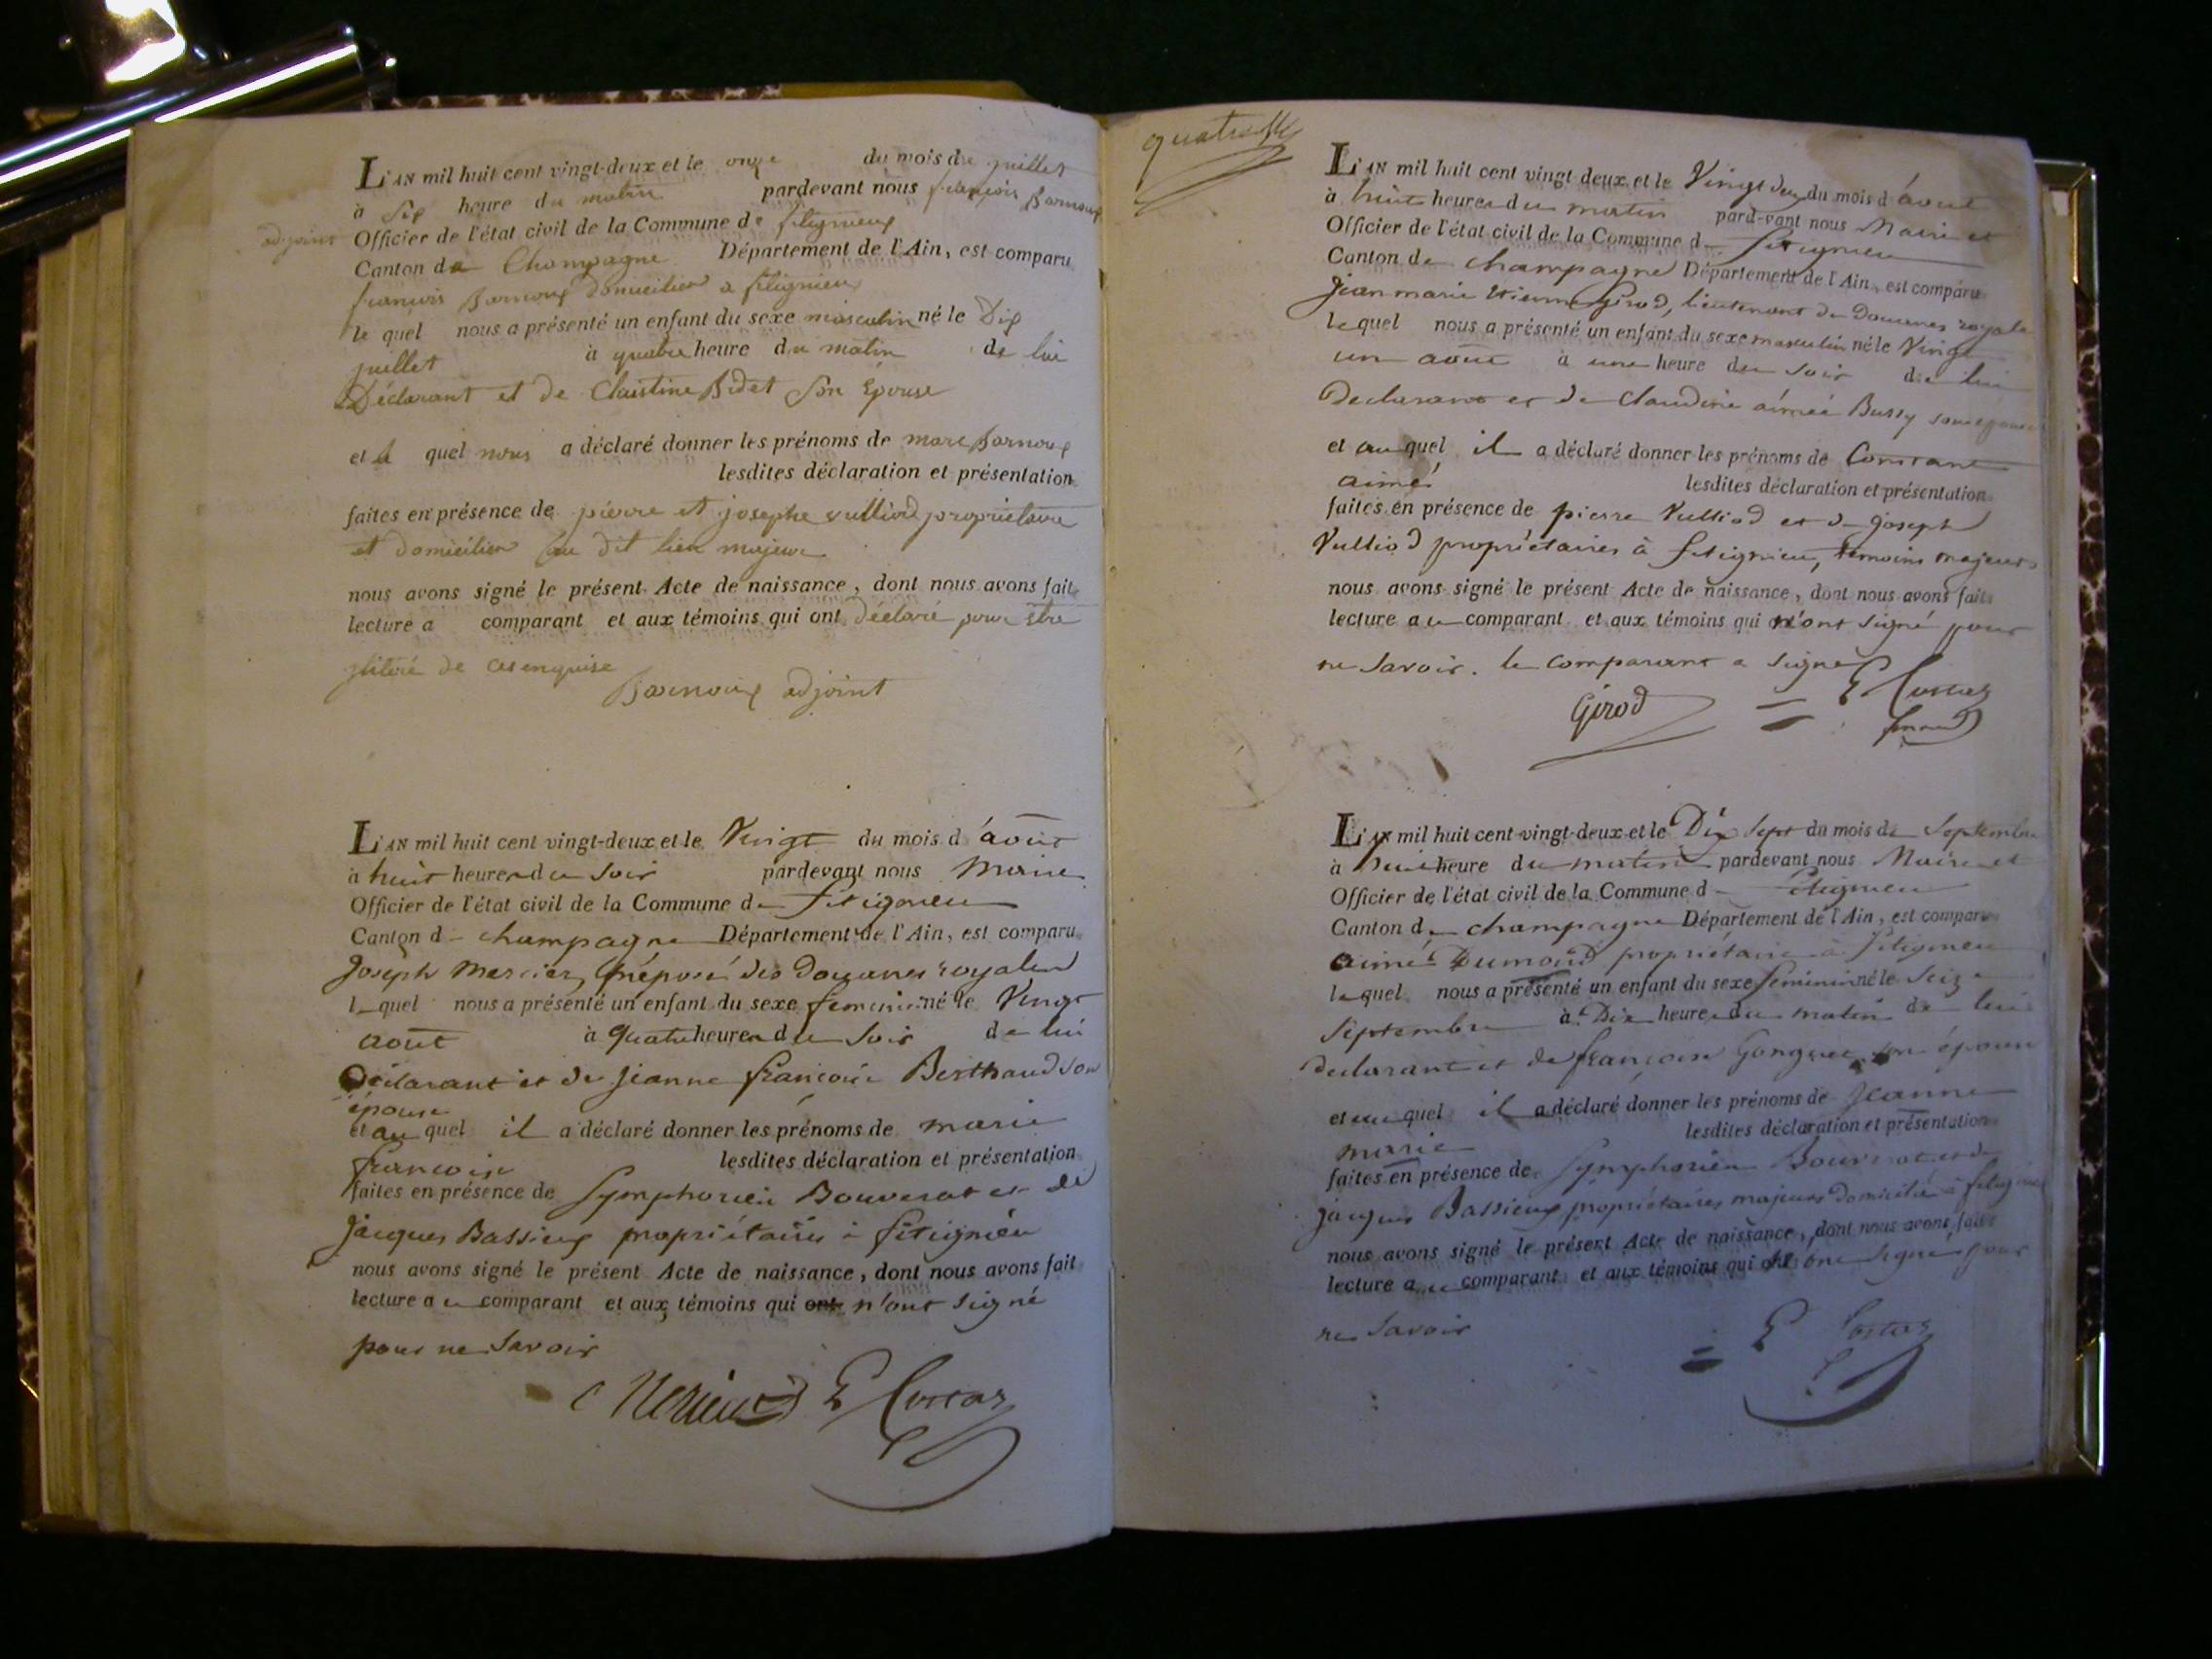 L'AN mil huit cent vingt-deux et le onze du mois de juillet
à six heure du matin pardevant nous françois Barnoux
adjoint Officier de l'état civil de la Commune de fitignieux
Canton de Champagne Département de l'Ain, est comparu
françois Barnoux domicilier a fitignieux
le quel nous a présenté un enfant du sexe masculin né le Dix
juillet à quatre heure du matin de lui
Déclarant et de Claustine Bidet Son Epouse
et a quel nous a déclaré donner les prénoms de marc Barnoux
lesdites déclaration et présentation
faites en présence de pierre et josephe vulliod proprietaire
et domicilier au dit lieu majeur
nous avons signé le présent Acte de naissance, dont nous avons fait
lecture a comparant et aux témoins qui ont déclaré pour être
jlitéré de ce enquise
Barnoux adjoint
L'AN mil huit cent vingt-deux et le Vingt du mois d'août
à huit heures du soir pardevant nous Maire
Officier de l'état civil de la Commune de fitignieu
Canton de champagne Département de l'Ain, est comparu
Joseph Mercier, préposé des douanes royales
lequel nous a présenté un enfant du sexe feminin né le Vingt
août à quatre heures du soir de lui
Déclarant et de Jeanne françoise Berthaud son
épouse
et au quel il a déclaré donner les prénoms de marie
françoise lesdites déclaration et présentation
faites en présence de Symphorien Bouverat et de
Jacques Bassieux propriétaires à fitignieu
nous avons signé le présent Acte de naissance, dont nous avons fait
lecture au comparant et aux témoins qui ont n'ont signé
pour ne savoir
Mercier E Costaz
quatre
L'AN mil huit cent vingt-deux et le Vingt deux du mois d'août
à huit heures du matin pardevant nous Maire et
Officier de l'état civil de la Commune de fitignieu
Canton de champagne Département de l'Ain, est comparu
Jean marie Etienne Girod, lieutenant de Douanes royales
lequel nous a présenté un enfant du sexe masculin né le Vingt
un août à une heure du soir de lui
Declarant et de Claudine aimée Bussy son épouse
et au quel il a déclaré donner les prénoms de Constant
aimé lesdites déclaration et présentation
faites en présence de pierre Vulliod et de Joseph
Vulliod propriétaires à fitignieu, témoins majeurs
nous avons signé le présent Acte de naissance, dont nous avons fait
lecture au comparant et aux témoins qui n'ont signé pour
ne savoir. le comparant a signé
Girod E Costaz
L'AN mil huit cent vingt-deux et le Dix sept du mois de Septembre
à huit heure du matin pardevant nous Maire et
Officier de l'état civil de la Commune de fitignieu
Canton de champagne Département de l'Ain, est comparu
aimé Dumond propriétaire à fitignieu
lequel nous a présenté un enfant du sexe féminin né le seize
septembre à Dix heures du matin de lui
declarant et de françoise Gonguet son épouse
et au quel il a déclaré donner les prénoms de Jeanne
marie lesdites déclaration et présentation
faites en présence de Symphorien Bouverat et de
Jacques Bassieux propriétaires majeurs domicilié à fitignieu
nous avons signé le présent Acte de naissance, dont nous avons fait
lecture au comparant et aux témoins qui ont signé pour
ne savoir
E Costaz